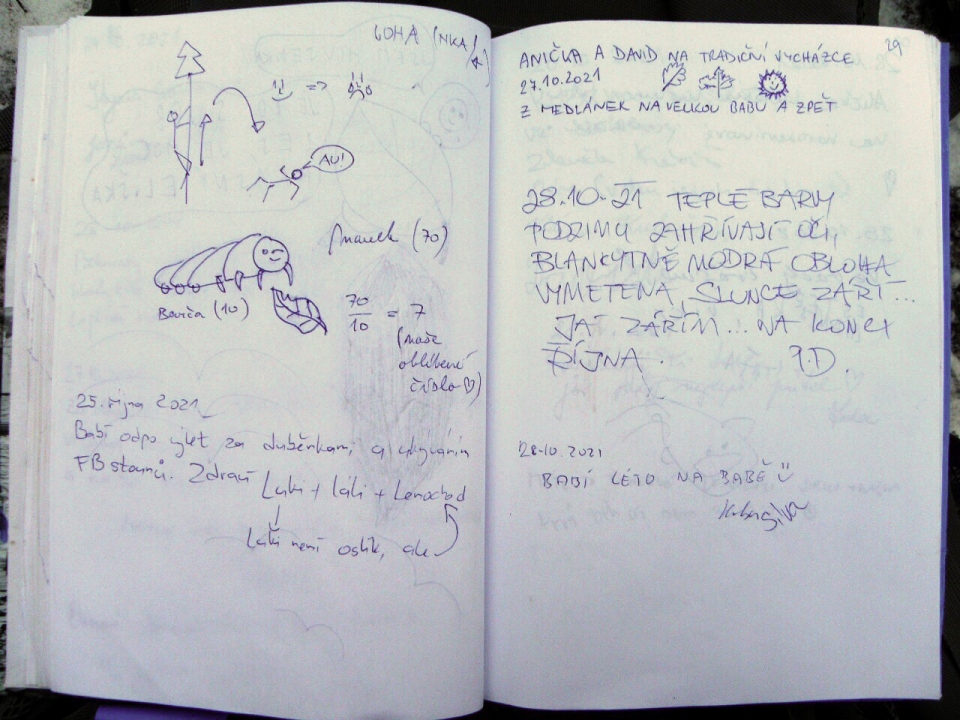 LOHA (NKA)
=>
AU!
(70)
(10)
70/10 = 7
(naše
oblíbené
číslo ♡)
25. října 2021
Babí odpo výlet za duběnkami, a
FB Zdraví Luki + Láli + Lenochod
není oslík, ale
29
ANIČKA A DAVID NA TRADIČNÍ VYCHÁZCE
27.10.2021
Z MEDLÁNEK NA VELKOU BABU A ZPĚT
28.10.21 TEPLÉ BARVY
PODZIMU ZAHŘÍVAJÍ OČI,
BLANKYTNĚ MODRÁ OBLOHA
VYMETENÁ, SLUNCE ZÁŘÍ...
JAŤ ZÁŘÍM... NA KONCI
ŘÍJNA.
28.10.2021
BABÍ LÉTO NA BABĚ